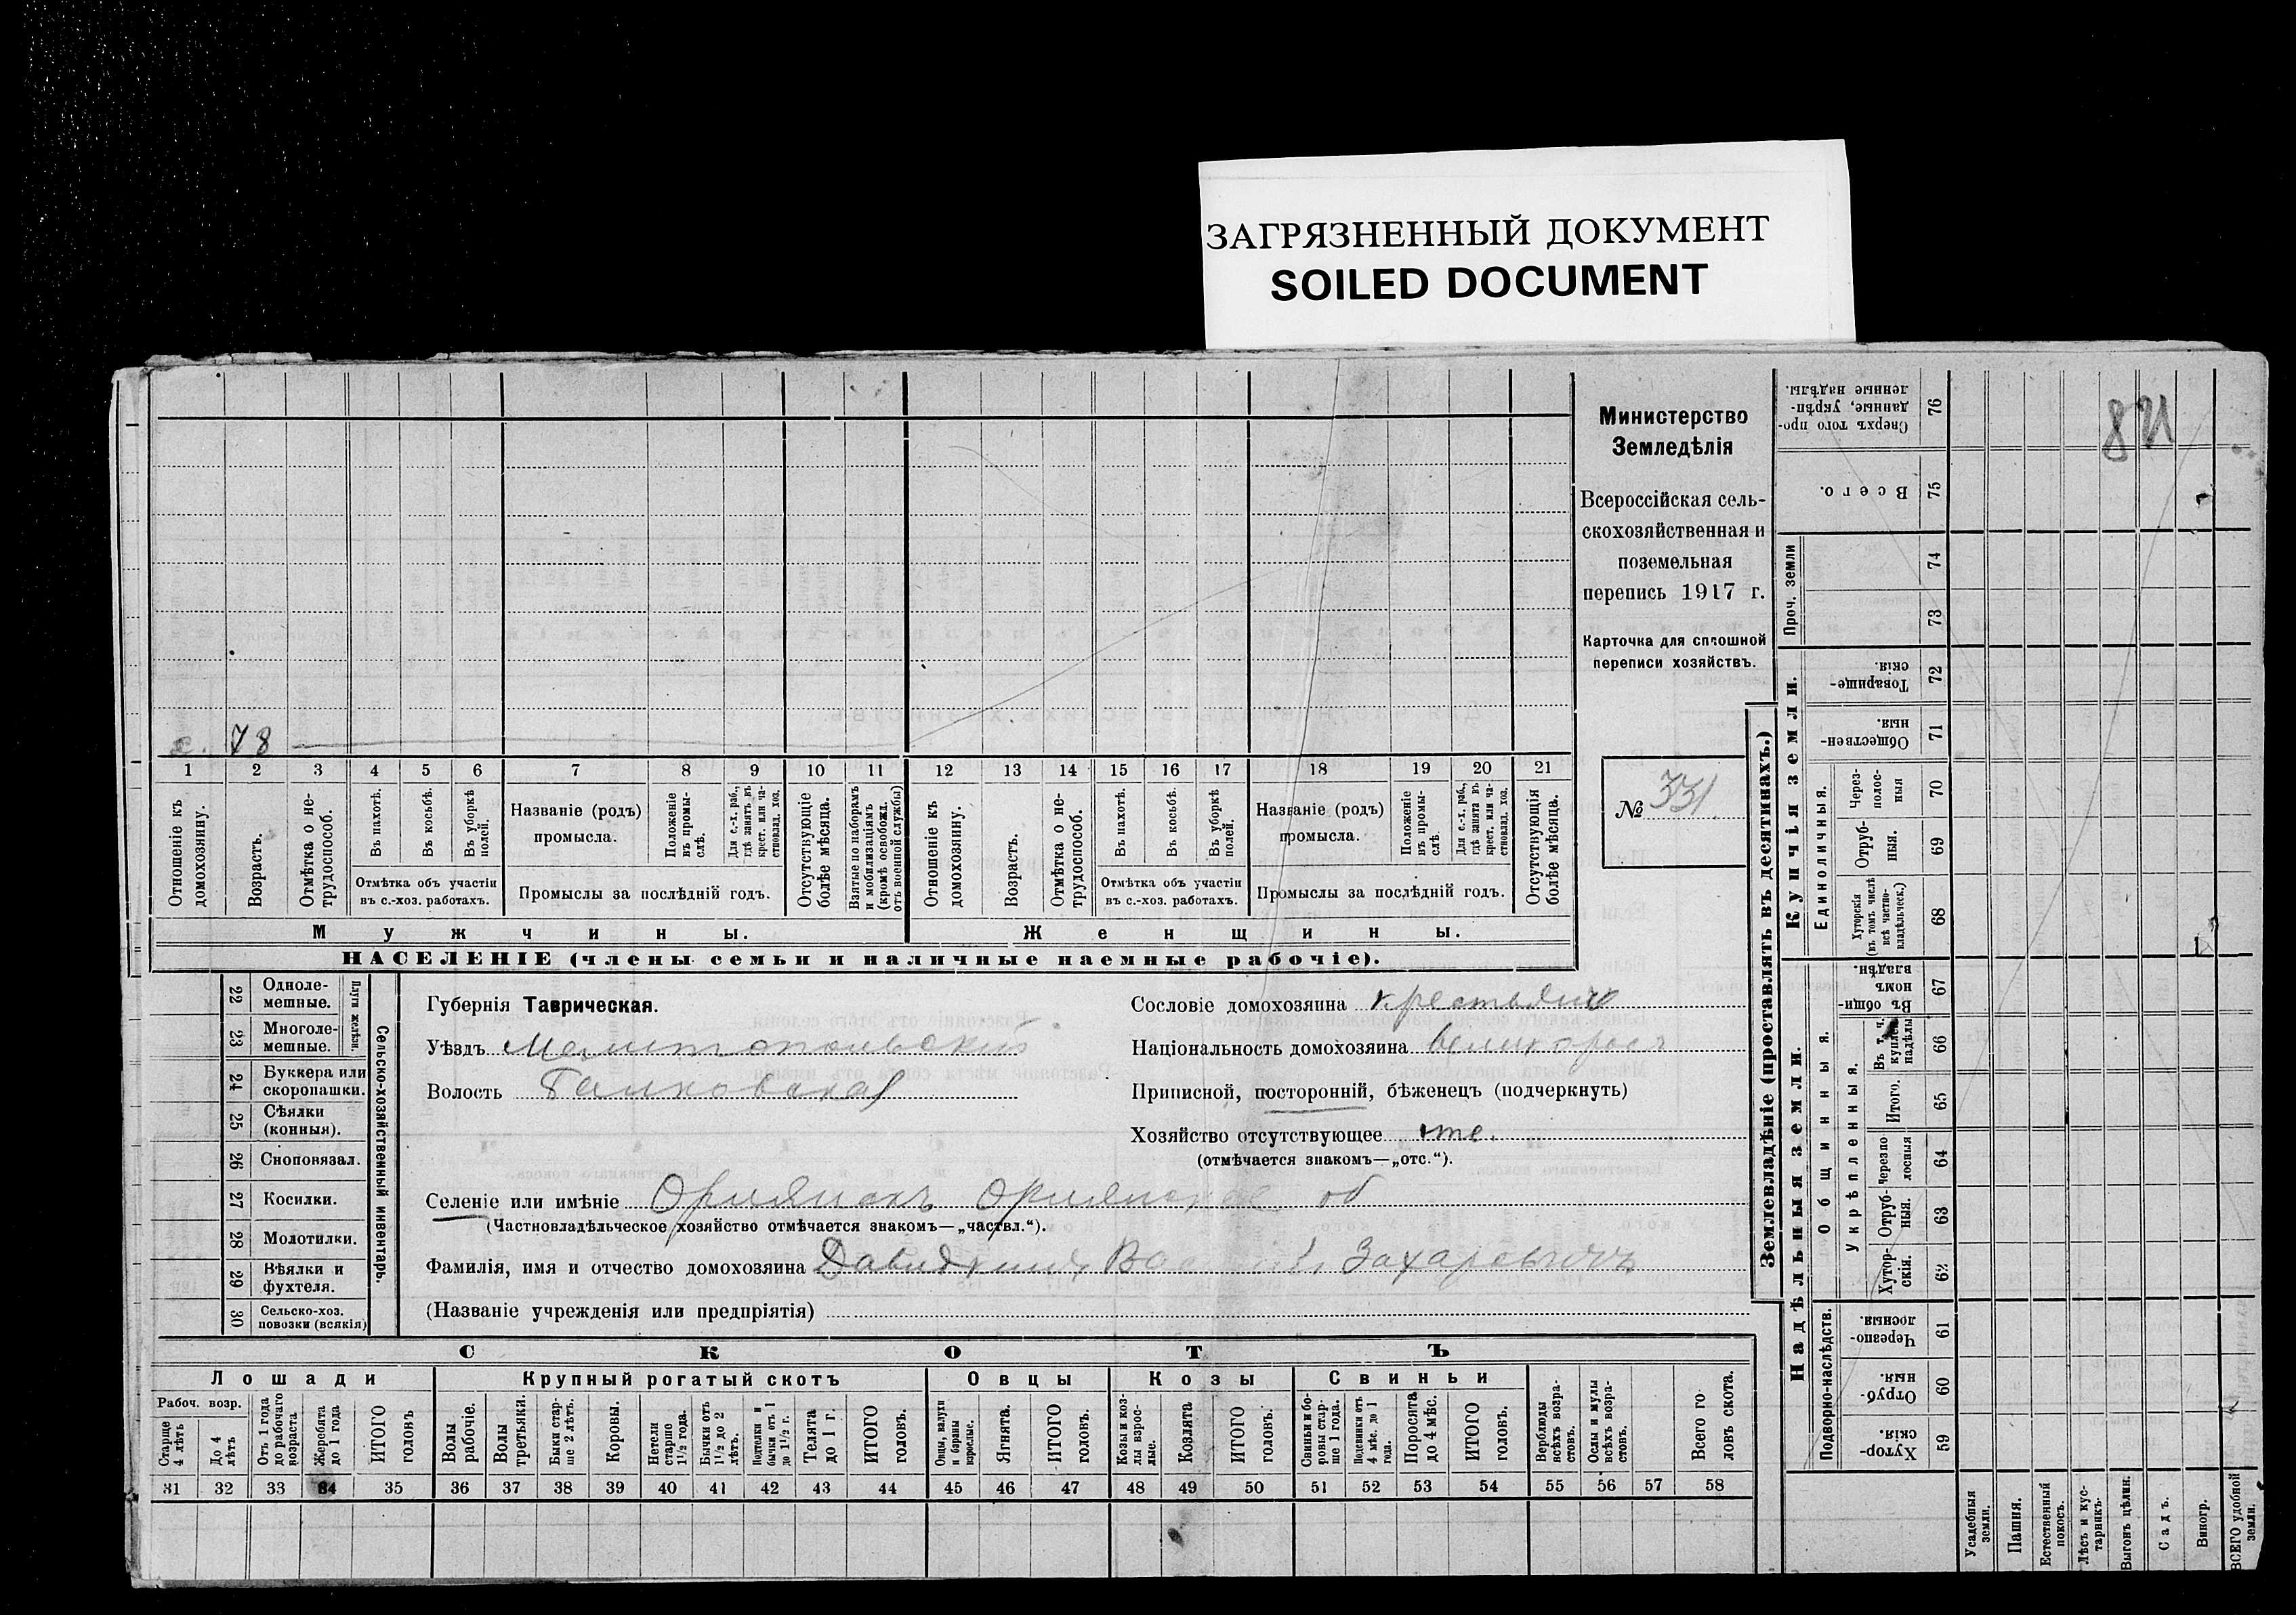 ЗАГРЯЗНЕННЫЙ ДОКУМЕНТ
SOILED DOCUMENT
821
Министерство
Земледѣлія
Всероссійская сель-
скохозяйственная и
поземельная
перепись 1917 г.
Карточка для сплошной
переписи хозяйствъ.
№ 331
78
1 2 3 4 5 6 7 8 9 10 11 12 13 14 15 16 17 18 19 20 21
Отношеніе къ домохозяину.
Возрастъ.
Отмѣтка о не-трудоспособ.
Въ пахотѣ.
Въ косьбѣ.
Въ уборкѣ полей.
Отмѣтка объ участіи
въ с.-хоз. работахъ.
Названіе (родъ)
промысла.
Положеніе въ промы-слѣ.
Для с.-х. раб., гдѣ занятъ въ крест. или ча-стновлад. хоз.
Промыслы за послѣдній годъ.
Отсутствующіе болѣе мѣсяца.
Взятые по наборамъ и мобилизаціямъ (кромѣ освобожд. отъ военной службы)
Отношеніе къ домохозяину.
Возрастъ.
Отмѣтка о не-трудоспособ.
Въ пахотѣ.
Въ косьбѣ.
Въ уборкѣ полей.
Отмѣтка объ участіи
въ с.-хоз. работахъ.
Названіе (родъ)
промысла.
Положеніе въ промы-слѣ.
Для с.-х. раб., гдѣ занята въ крест. или ча-стновлад. хоз.
Промыслы за послѣдній годъ.
Отсутствующія болѣе мѣсяца.
Мужчины.
Женщины.
НАСЕЛЕНІЕ (члены семьи и наличные наемные рабочіе).
22 Одноле-мешные.
23 Многоле-мешные.
Плуги желѣзн.
24 Буккера или скоропашки.
25 Сѣялки (конныя).
26 Сноповязал.
27 Косилки.
28 Молотилки.
29 Вѣялки и фухтеля.
30 Сельско-хоз. повозки (всякія)
Сельско-хозяйственный инвентарь.
Губернія Таврическая.
Уѣздъ Мелитопольскій
Волость
Сословіе домохозяина крестьянин
Національность домохозяина великоросс
Приписной, посторонній, бѣженецъ (подчеркнуть)
Хозяйство отсутствующее отс.
(отмѣчается знакомъ—„отс.“).
Селеніе или имѣніе Орлянскъ Орлянское об
(Частновладѣльческое хозяйство отмѣчается знакомъ—„частвл.“).
Фамилія, имя и отчество домохозяина Давидкинъ Захаровичъ
(Названіе учрежденія или предпріятія)
СКОТЪ
Лошади
Крупный рогатый скотъ
Овцы
Козы
Свиньи
Рабоч. возр.
Старше 4 лѣтъ
До 4 лѣтъ
Отъ 1 года до рабочаго возраста
Жеребята до 1 года
ИТОГО головъ
Волы рабочіе.
Волы третьяки.
Быки стар-ше 2 лѣтъ.
Коровы.
Нетели старше 1½ года.
Бычки отъ 1½ до 2 лѣтъ.
Подтелки и бычки отъ 1 до 1½ г.
Телята до 1 г.
ИТОГО головъ.
Овцы, валухи и бараны взрослые.
Ягнята.
ИТОГО головъ.
Козы и коз-лы взрос-лые.
Козлята
ИТОГО головъ.
Свиньи и бо-ровы стар-ше 1 года.
Подсвинки отъ 4 мѣс. до 1 года.
Поросята до 4 мѣс.
ИТОГО головъ.
Верблюды всѣхъ возра-стовъ.
Ослы и мулы всѣхъ возра-стовъ.
Всего го-ловъ скота.
31 32 33 34 35 36 37 38 39 40 41 42 43 44 45 46 47 48 49 50 51 52 53 54 55 56 57 58
Землевладѣніе (проставлять въ десятинахъ.)
Купчія земли.
Надѣльныя земли.
Сверхъ того про-данные, укрѣп-ленные надѣлы. 76
Всего. 75
Проч. земли
74
73
Товарище-скія. 72
Обществен-ныя. 71
Единоличныя.
Через-полос-ныя 70
Отруб-ныя. 69
Хуторскія (въ томъ числѣ всѣ частно-владѣльческ.) 68
Общинныя.
Въ общин-номъ владѣн. 67
Укрѣпленныя.
Въ т. ч. куплен. надѣлы 66
Итого. 65
Черезпо-лосныя 64
Отруб-ныя. 63
Хутор-скія. 62
Подворно-наслѣдств.
Черезпо-лосныя. 61
Отруб-ныя. 60
Хутор-скія. 59
Усадебныя земли.
Пашня.
Естественный покосъ.
Лѣсъ и кус-тарникъ.
Выгонъ цѣлин.
Садъ.
Виногр.
ВСЕГО удобной земли.